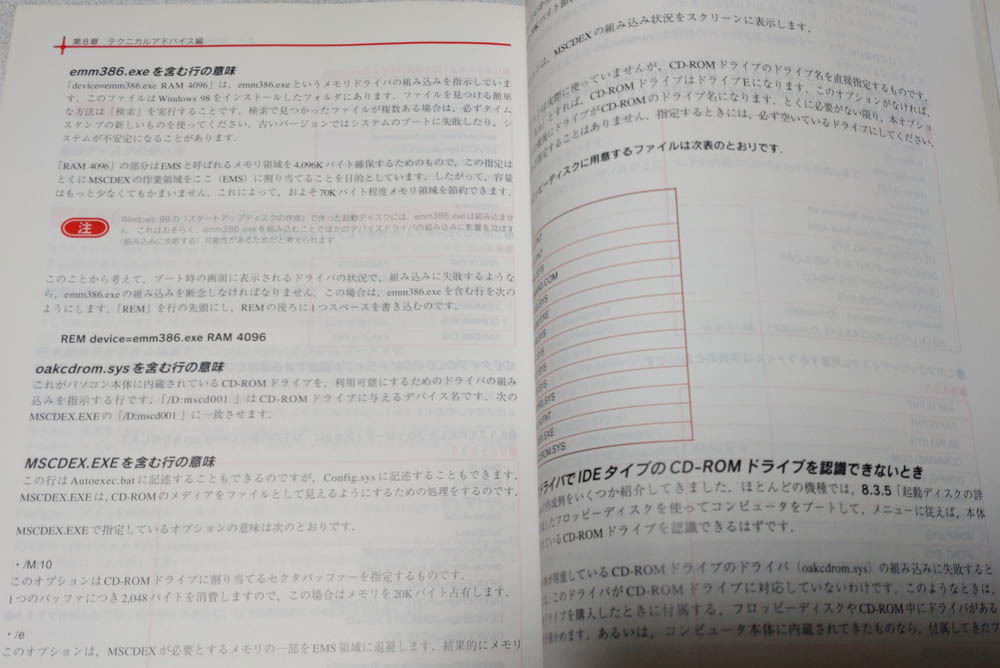 第8章 テクニカルアドバイス編
emm386.exeを含む行の意味
「device=emm386.exe RAM 4096」は，emm386.exeというメモリドライバの組み込みを指示していま
す．このファイルはWindows 98をインストールしたフォルダにあります．ファイルを見つける簡単
な方法は「検索」を実行することです．検索で見つかったファイルが複数ある場合は，必ずタイム
スタンプの新しいものを使ってください．古いバージョンではシステムのブートに失敗したり，シ
ステムが不安定になることがあります．
「RAM 4096」の部分はEMSと呼ばれるメモリ領域を4,096Kバイト確保するためのもので，この指定は
とくにMSCDEXの作業領域をここ（EMS）に割り当てることを目的としています．したがって，容量
はもっと少なくてもかまいません．これによって，およそ70Kバイト程度メモリ領域を節約できます．
注
Windows 98の「スタートアップディスクの作成」で作った起動ディスクには，emm386.exeは組み込ませ
ん．これはおそらく，emm386.exeを組み込むことでほかのデバイスドライバの組み込みに影響を及ぼす
（組み込みに失敗する）可能性があるためだと考えられます
このことから考えて，ブート時の画面に表示されるドライバの状況で，組み込みに失敗するような
ら，emm386.exeの組み込みを断念しなければなりません．この場合は，emm386.exeを含む行を次の
ようにします．「REM」を行の先頭にし，REMの後ろに1つスペースを書き込むのです．
REM device=emm386.exe RAM 4096
oakcdrom.sysを含む行の意味
これがパソコン本体に内蔵されているCD-ROMドライブを，利用可能にするためのドライバの組み
込みを指示する行です．「/D:mscd001」はCD-ROMドライブに与えるデバイス名です．次の
MSCDEX.EXEの「/D:mscd001」に一致させます．
MSCDEX.EXEを含む行の意味
この行はAutoexec.batに記述することもできるのですが，Config.sysに記述することもできます．
MSCDEX.EXEは，CD-ROMのメディアをファイルとして見えるようにするための処理をするのです．
MSCDEX.EXEで指定しているオプションの意味は次のとおりです．
・/M:10
このオプションはCD-ROMドライブに割り当てるセクタバッファーを指定するものです．
1つのバッファにつき2,048バイトを消費しますので，この場合はメモリを20Kバイト占有します．
・/e
このオプションは，MSCDEXが必要とするメモリの一部をEMS領域に退避します．結果的にメモリ
MSCDEXの組み込み状況をスクリーンに表示します．
実際に使っていませんが，CD-ROMドライブのドライブ名を直接指定するものです．
とすれば，CD-ROMドライブはドライブEになります．このオプションがなければ，
ドライブがCD-ROMのドライブ名になります．とくに必要がない限り，本オプショ
指定することはありません．指定するときには，必ず空いているドライブにしてください．
ッピーディスクに用意するファイルは次表のとおりです．
.FNT
.SYS
.COM
.SYS
.EXE
.SYS
.SYS
.SYS
.SYS
.FNT
.EXE
ROM.SYS
ドライバでIDEタイプのCD-ROMドライブを認識できないとき
作成例をいくつか紹介してきました．ほとんどの機種では，8.3.5「起動ディスクの詳
したフロッピーディスクを使ってコンピュータをブートして，メニューに従えば，本体
れているCD-ROMドライブを認識できるはずです．
が用意しているCD-ROMドライブのドライバ（oakcdrom.sys）の組み込みに失敗すると
，このドライバがCD-ROMドライブに対応していないわけです．このようなときは，
ドライブを購入したときに付属する，フロッピーディスクやCD-ROM中にドライバがある
かめます．あるいは，コンピュータ本体に内蔵されてきたものなら，付属してきたフ